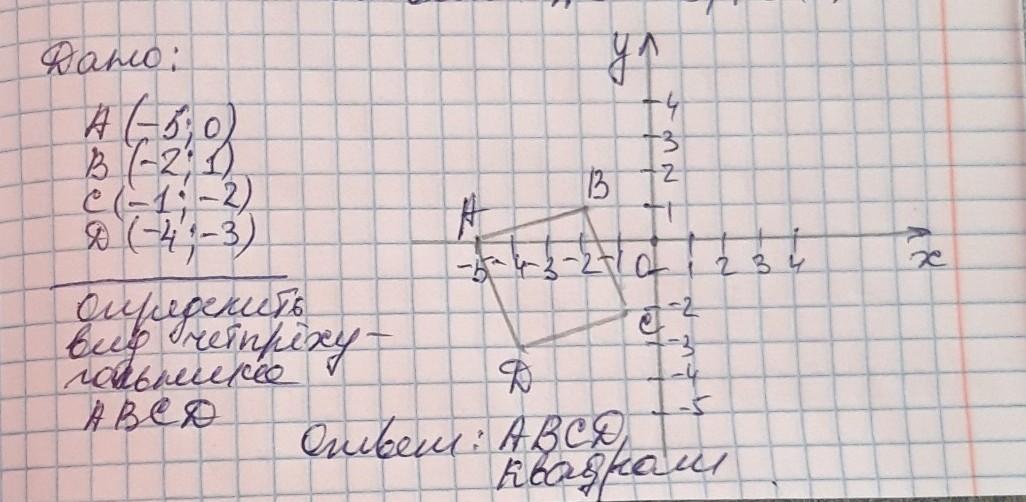 Дано:
A (-5; 0)
B (-2; 1)
C (-1; -2)
D (-4; -3)
определить
вид четырёху-
гольника
ABCD
y
4
3
2
1
A
B
-5 -4 -3 -2 -1 0 1 2 3 4 x
C
-2
-3
-4
-5
D
Ответ: ABCD,
квадрат